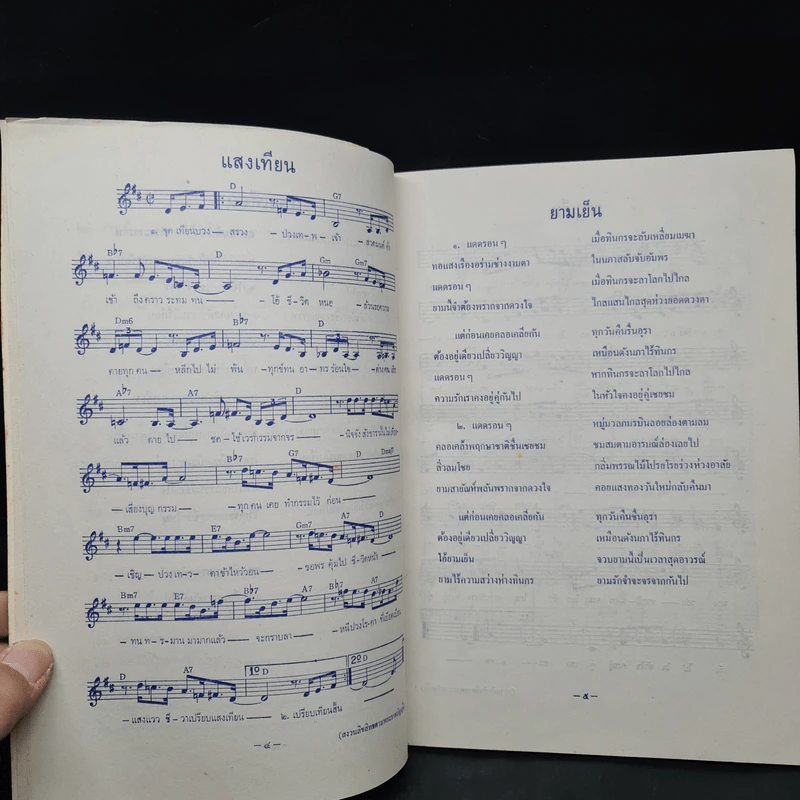 แสงเทียน
D G7
๑. จุดเทียนบวง — สรวง — ปวงเทพ — เจ้า —
B♭7 D Gm Gm7
เช้า ถึงคราวระทมทน — โอ้ชีวิต หนอ —
Dm6 B♭7 D
ตายทุกคน — หลีกไปไม่ พ้น — ทุกข์ทน อาทรร้อนใจ —
A♭7 A7 D
แล้ว ตายไป — ชดใช้เวรกรรมจากจร —
B♭7 G7 D
— เสียงบุญกรรม — ทุกคนเคย ทำกรรมไว้ ก่อน —
Bm7 E7 Gm7 A7 D
— เชิญ — ปวงเทว — ดาข้าไหว้วอน — ขอพร คุ้มไป ชีวิตหน้า
Bm7 E7 B♭7 A7
— ทนทรมานมามากแล้ว — จะกราบลา —
D A7 1º D 2º D
— แสงแวว ชีวาเปรียบแสงเทียน — ๒. เปรียบเทียนสิ้น
— ๔ —
ยามเย็น
๑. แดดรอน ๆ เมื่อทินกรจะลับเหลี่ยมเมฆา
ทอแสงเรืองอร่ามช่างงามตา ในนภาสลับจับอัมพร
แดดรอน ๆ เมื่อทินกรจะลาโลกไปไกล
ยามนี้จำต้องพรากจากดวงใจ ไกลแสนไกลสุดห่วงยอดดวงตา
แต่ก่อนเคยคลอเคลียกัน ทุกวันคืนรื่นอุรา
ต้องอยู่เดียวเปลี่ยววิญญา เหมือนดังนภาไร้ทินกร
แดดรอน ๆ หากทินกรจะลาโลกไปไกล
ความรักเราคงอยู่คู่กันไป ในหัวใจคงอยู่คู่เชยชม
๒. แดดรอน ๆ หมู่มวลภมรบินลอยล่องตามลม
คลอเคล้าพฤกษาชาติชื่นเชยชม ชมสมตามอารมณ์ล่องเลยไป
ลิ่วลมโชย กลิ่นพรรณไม้โปรยโรยร่วงห่วงอาลัย
ยามสายัณห์พลันพรากจากดวงใจ คอยแสงทองวันใหม่กลับคืนมา
แต่ก่อนเคยคลอเคลียกัน ทุกวันคืนชื่นอุรา
ต้องอยู่เดียวเปลี่ยววิญญา เหมือนดังนภาไร้ทินกร
โอ้ยามเย็น จวบยามนี้เป็นเวลาสุดอาวรณ์
ยามไร้ความสว่างห่างทินกร ยามรักจำจะจรจากกันไป
— ๕ —